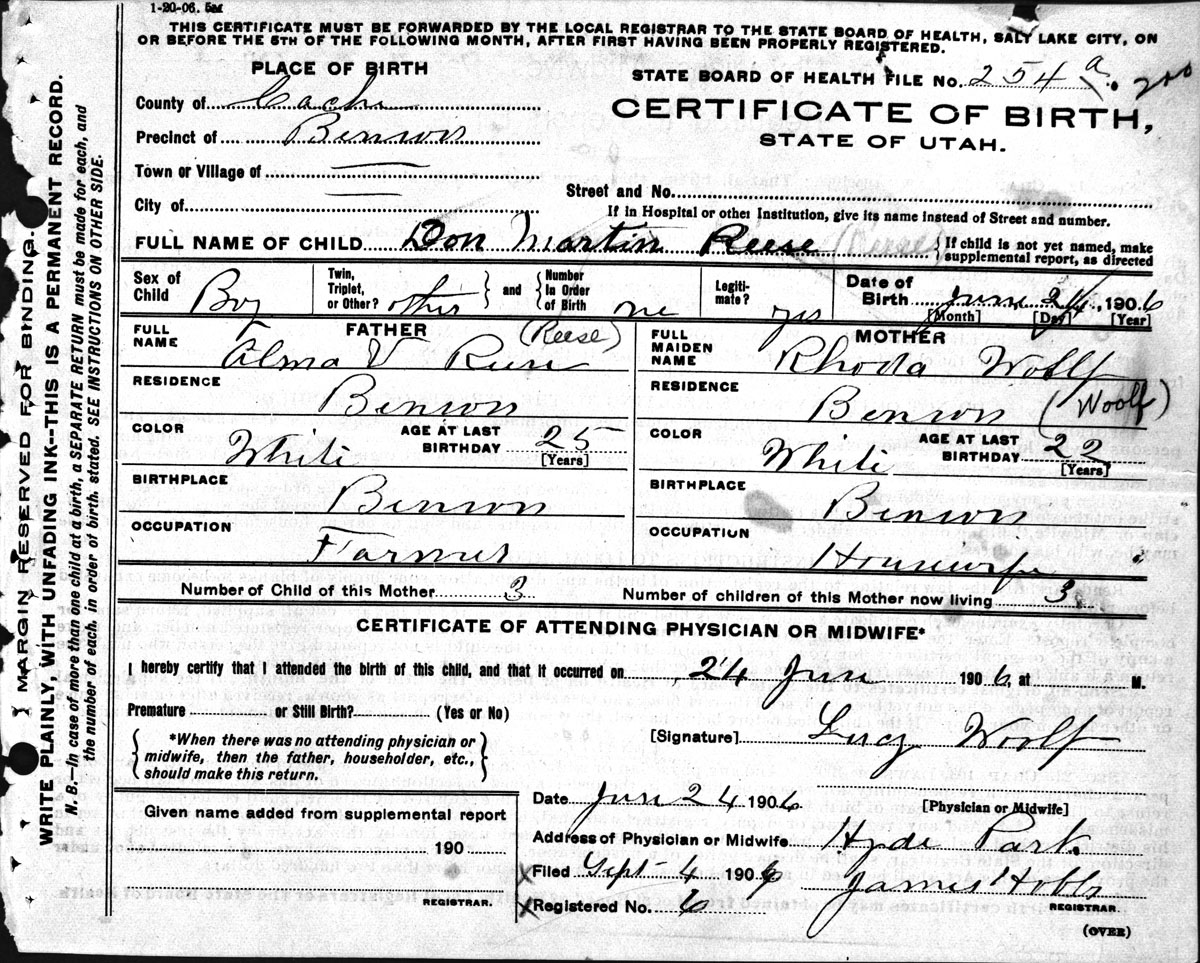 1-20-06. 5M
THIS CERTIFICATE MUST BE FORWARDED BY THE LOCAL REGISTRAR TO THE STATE BOARD OF HEALTH, SALT LAKE CITY, ON
OR BEFORE THE 5TH OF THE FOLLOWING MONTH, AFTER FIRST HAVING BEEN PROPERLY REGISTERED.
PLACE OF BIRTH
STATE BOARD OF HEALTH FILE No. 254 a. 200
County of Cache
CERTIFICATE OF BIRTH,
Precinct of Benson
STATE OF UTAH.
Town or Village of
Street and No.
City of
If in Hospital or other Institution, give its name instead of Street and number.
FULL NAME OF CHILD Don Martin Reese (Reese) { If child is not yet named, make
supplemental report, as directed
Sex of Child Boy
Twin, Triplet, or Other? other } and { Number In Order of Birth
Legitimate? yes
Date of Birth June 24, 1906
[Month] [Day] [Year]
FATHER
FULL NAME Alma V Reese (Reese)
RESIDENCE
Benson
COLOR White AGE AT LAST BIRTHDAY 25
[Years]
BIRTHPLACE
Benson
OCCUPATION
Farmer
MOTHER
FULL MAIDEN NAME Rhoda Woolf
RESIDENCE
Benson (Woolf)
COLOR White AGE AT LAST BIRTHDAY 22
[Years]
BIRTHPLACE
Benson
OCCUPATION
Housewife
Number of Child of this Mother 3 Number of children of this Mother now living 3
CERTIFICATE OF ATTENDING PHYSICIAN OR MIDWIFE*
I hereby certify that I attended the birth of this child, and that it occurred on 24 June 1906, at M.
Premature or Still Birth? (Yes or No)
{ *When there was no attending physician or
midwife, then the father, householder, etc.,
should make this return. }
[Signature] Lucy Woolf
[Physician or Midwife]
Given name added from supplemental report
190
REGISTRAR.
Date June 24 1906
Address of Physician or Midwife Hyde Park
X Filed Sept 4 1906 James Hobbs
X Registered No. 6 REGISTRAR.
(OVER)
MARGIN RESERVED FOR BINDING.
WRITE PLAINLY, WITH UNFADING INK--THIS IS A PERMANENT RECORD.
N. B.—In case of more than one child at a birth, a SEPARATE RETURN must be made for each, and
the number of each, in order of birth, stated. SEE INSTRUCTIONS ON OTHER SIDE.